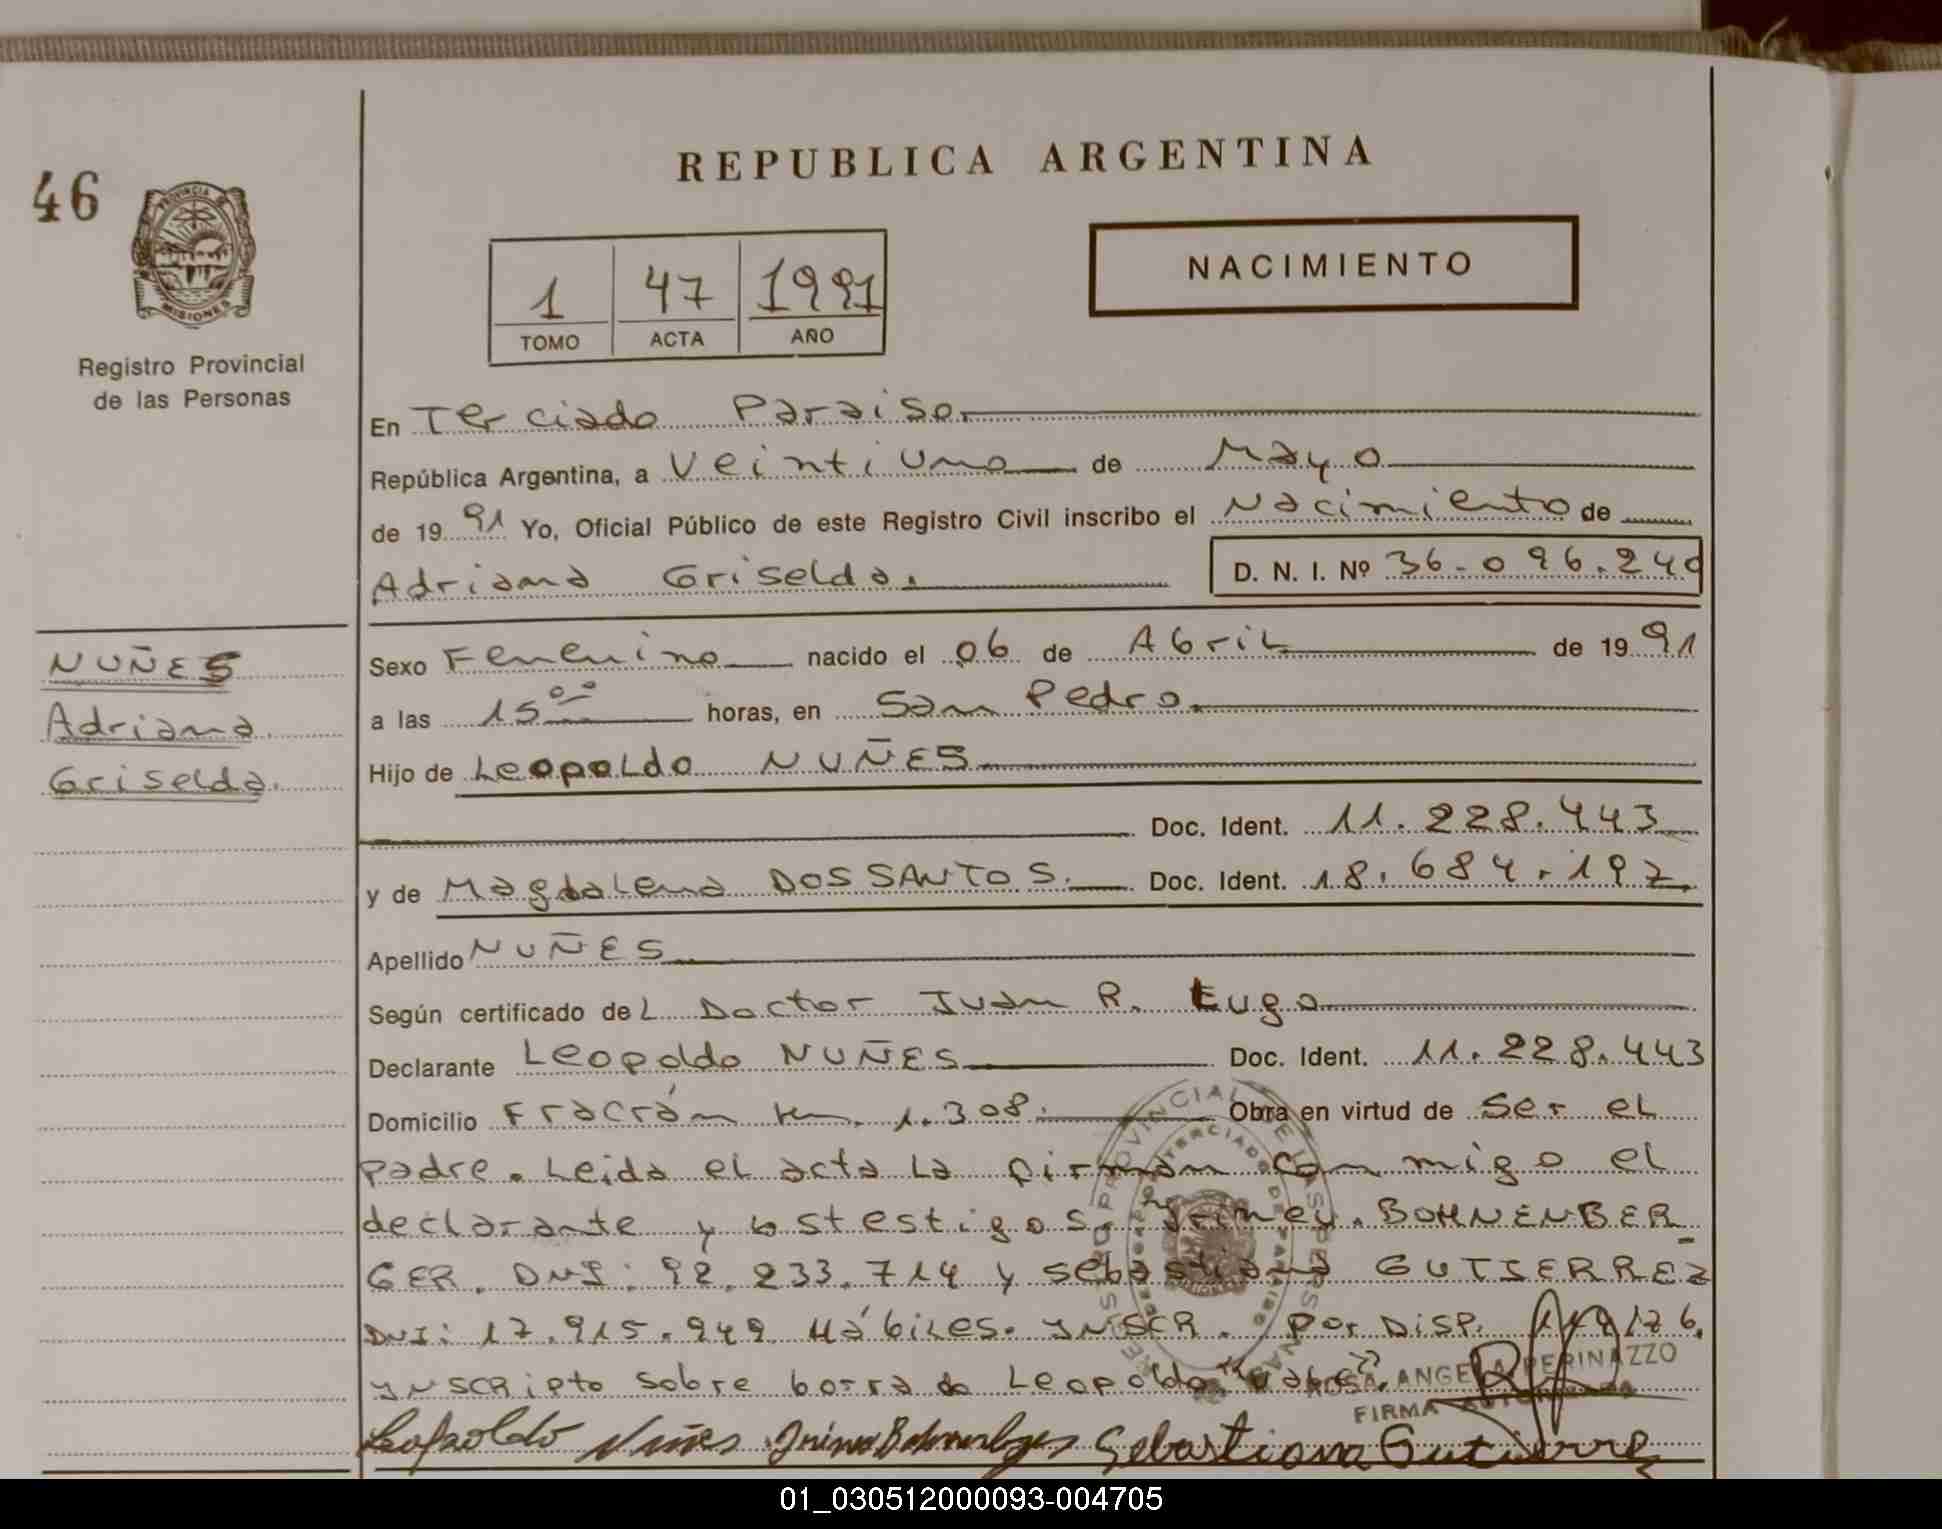 REPUBLICA ARGENTINA
46
PROVINCIA DE
MISIONES
Registro Provincial
de las Personas
NACIMIENTO
1 47 1991
TOMO ACTA AÑO
En Terciado Paraiso.
República Argentina, a Veintiuno de Mayo
de 1991 Yo, Oficial Público de este Registro Civil inscribo el Nacimiento de
Adriana Griselda. D. N. I. Nº 36.096.240
NUÑES
Adriana
Griselda.
Sexo Femenino nacido el 06 de Abril de 1991
a las 15 00 horas, en San Pedro.
Hijo de Leopoldo NUÑES
Doc. Ident. 11.228.443
y de Magdalena DOS SANTOS. Doc. Ident. 18.684.197.
Apellido NUÑES
Según certificado del Doctor Juan R. Lugo
Declarante Leopoldo NUÑES Doc. Ident. 11.228.443
Domicilio Fracrán km. 1.308. Obra en virtud de ser el
padre. Leida el acta la firman con migo el
declarante y los testigos. BOHNENBER
GER. DNI: 92.233.714 y Sebastiana GUTIERREZ
DNI: 17.915.949 Hábiles. YNSCR. Por DISP.
YNSCRipto sobre borrado Leopoldo "Vale".
ROSA ANGELA PERINAZZO
FIRMA AUTORIZADA
Leopoldo Nuñes Sebastiana Gutierrez
01_030512000093-004705